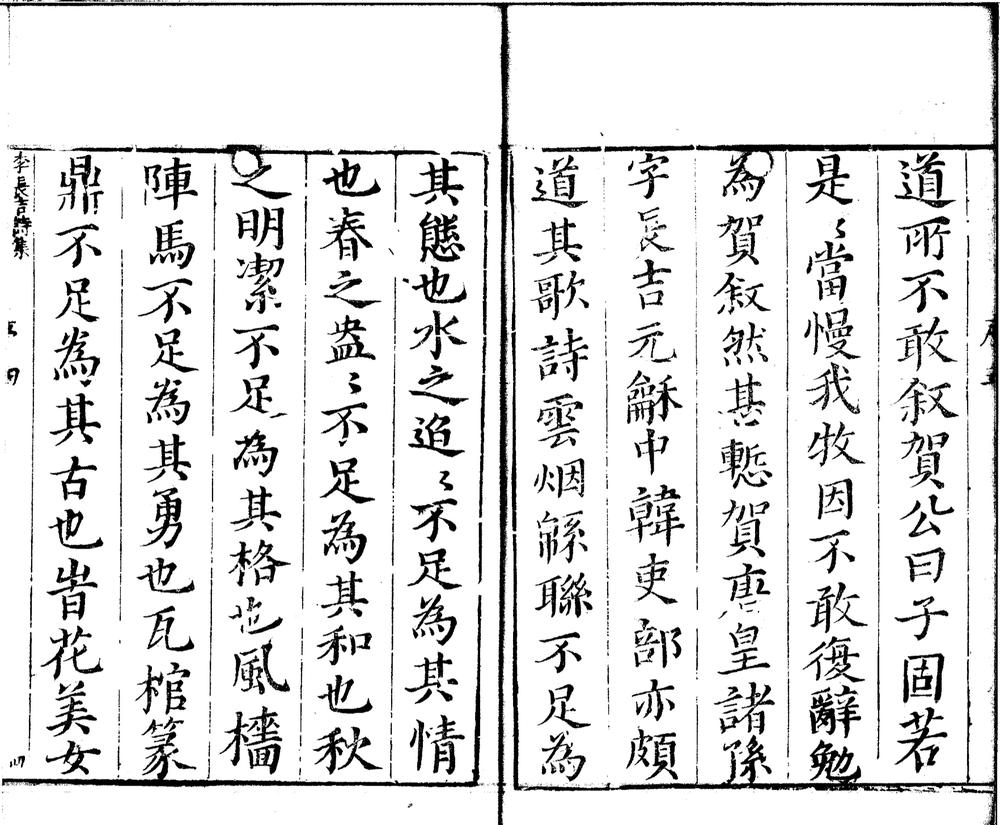 道所不敢叙賀公曰子固若
是〻當慢我牧因不敢復辭勉
為賀叙然其慙賀唐皇諸孫
字長吉元龢中韓吏部亦頗
道其歌詩雲烟緜聯不足為
其態也水之迢〻不足為其情
也春之盎〻不足為其和也秋
之明潔不足為其格也風檣
陣馬不足為其勇也瓦棺篆
鼎不足為其古也旹花美女
李長吉詩集
四